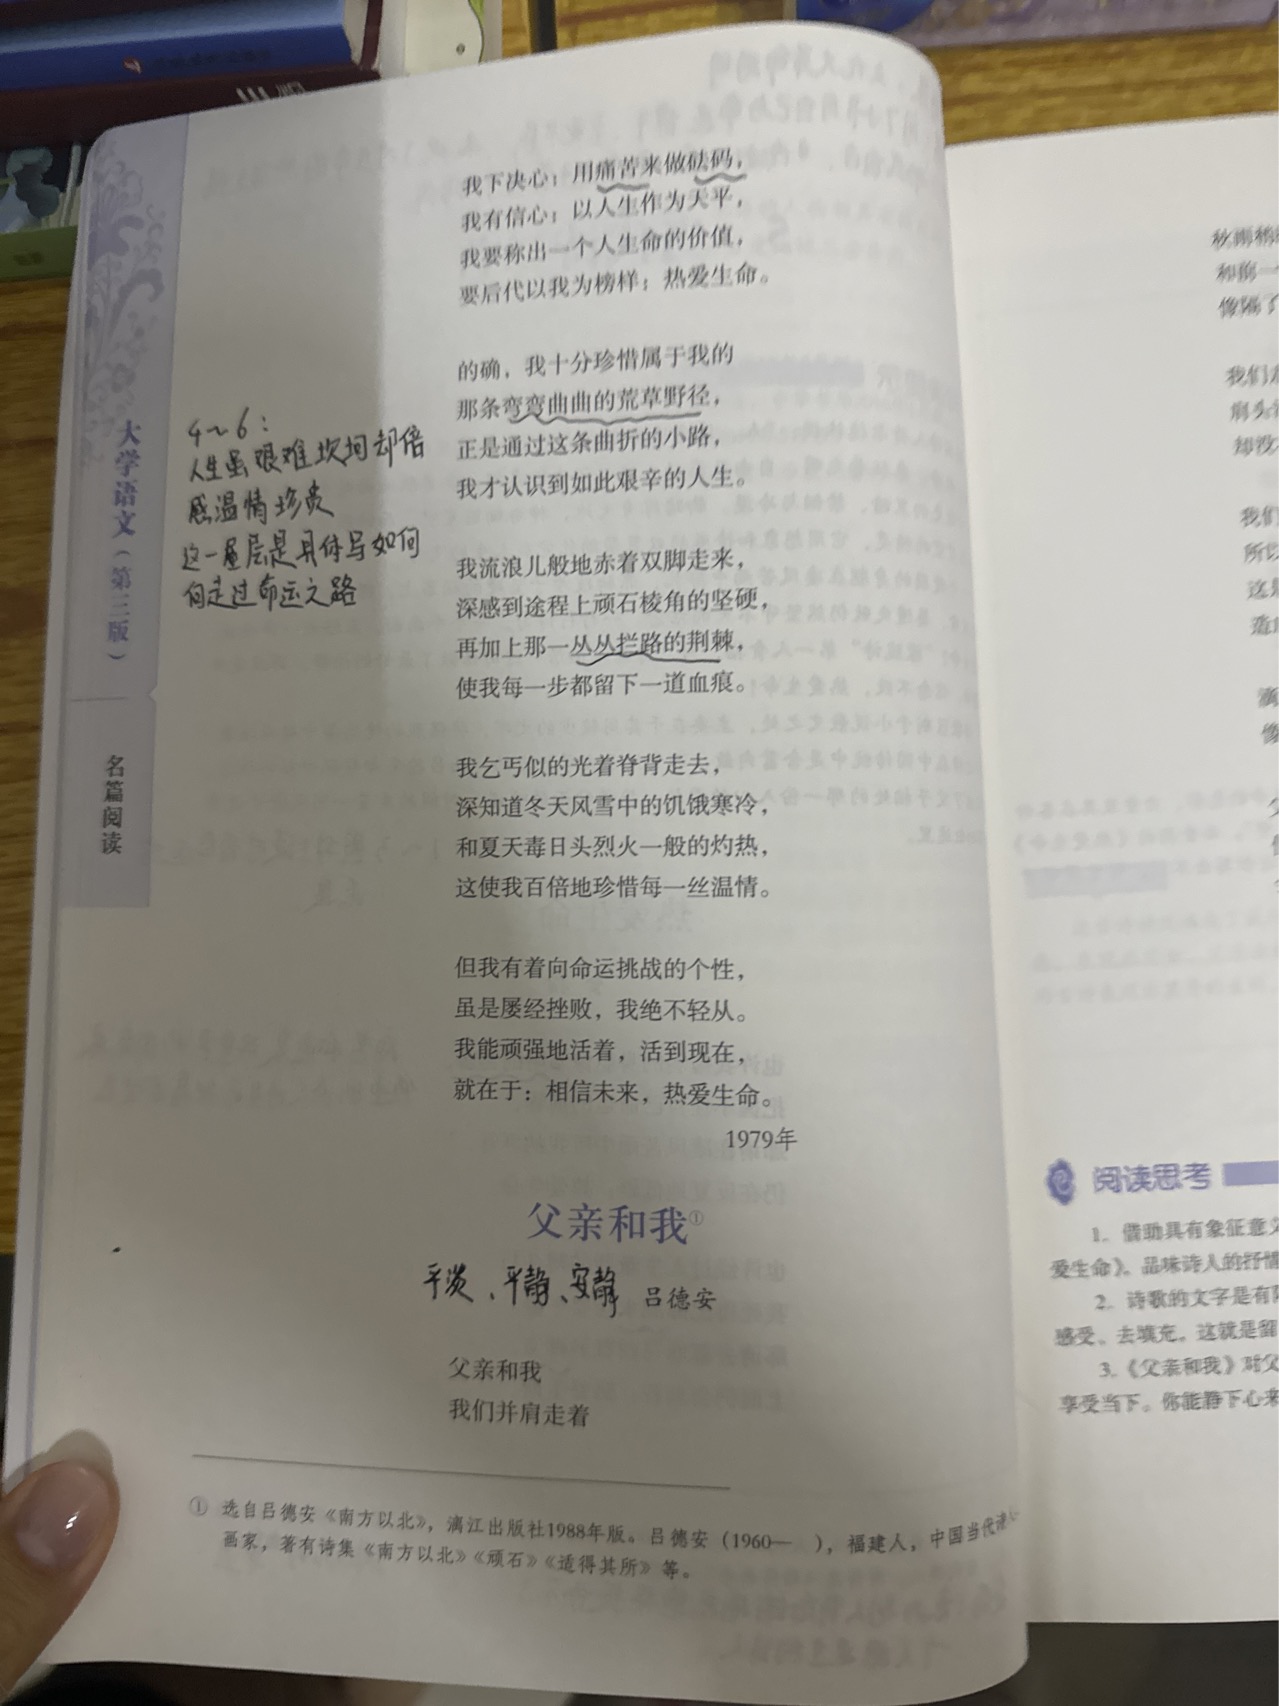 我下决心：用痛苦来做砝码，
我有信心：以人生作为天平，
我要称出一个人生命的价值，
要后代以我为榜样：热爱生命。
的确，我十分珍惜属于我的
那条弯弯曲曲的荒草野径，
正是通过这条曲折的小路，
我才认识到如此艰辛的人生。
我流浪儿般地赤着双脚走来，
深感到途程上顽石棱角的坚硬，
再加上那一丛丛拦路的荆棘，
使我每一步都留下一道血痕。
我乞丐似的光着脊背走去，
深知道冬天风雪中的饥饿寒冷，
和夏天毒日头烈火一般的灼热，
这使我百倍地珍惜每一丝温情。
但我有着向命运挑战的个性，
虽是屡经挫败，我绝不轻从。
我能顽强地活着，活到现在，
就在于：相信未来，热爱生命。
1979年
4～6：
人生虽艰难坎坷却倍
感温情珍贵
这一层是具体写如何
走过命运之路
大学语文（第三版）
名篇阅读
父亲和我①
平淡、平静、安静
吕德安
父亲和我
我们并肩走着
① 选自吕德安《南方以北》，漓江出版社1988年版。吕德安（1960— ），福建人，中国当代诗人
画家，著有诗集《南方以北》《顽石》《适得其所》等。
秋雨稍
和前一
像隔了
我们
肩头
却没
我们
所以
这是
造
像
阅读思考
1. 借助具有象征意义
爱生命》，品味诗人的抒情
2. 诗歌的文字是有
感受、去填充。这就是留
3.《父亲和我》对父
享受当下。你能静下心来